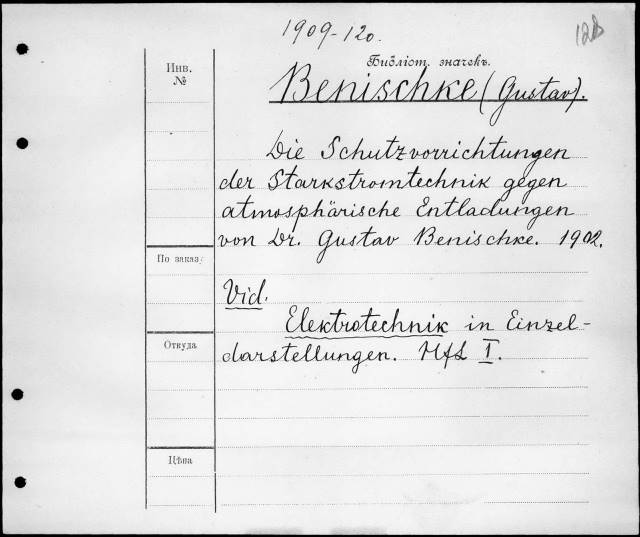 1909-120.
128
Библіот. значекъ.
Инв.
№
Benischke (Gustav).
Die Schutzvorrichtungen
der Starkstromtechnik gegen
atmosphärische Entladungen
von Dr. Gustav Benischke. 1902.
По заказ:
Vid.
Elektrotechnik in Einzel-
Откуда
darstellungen. Hft I.
Цѣна